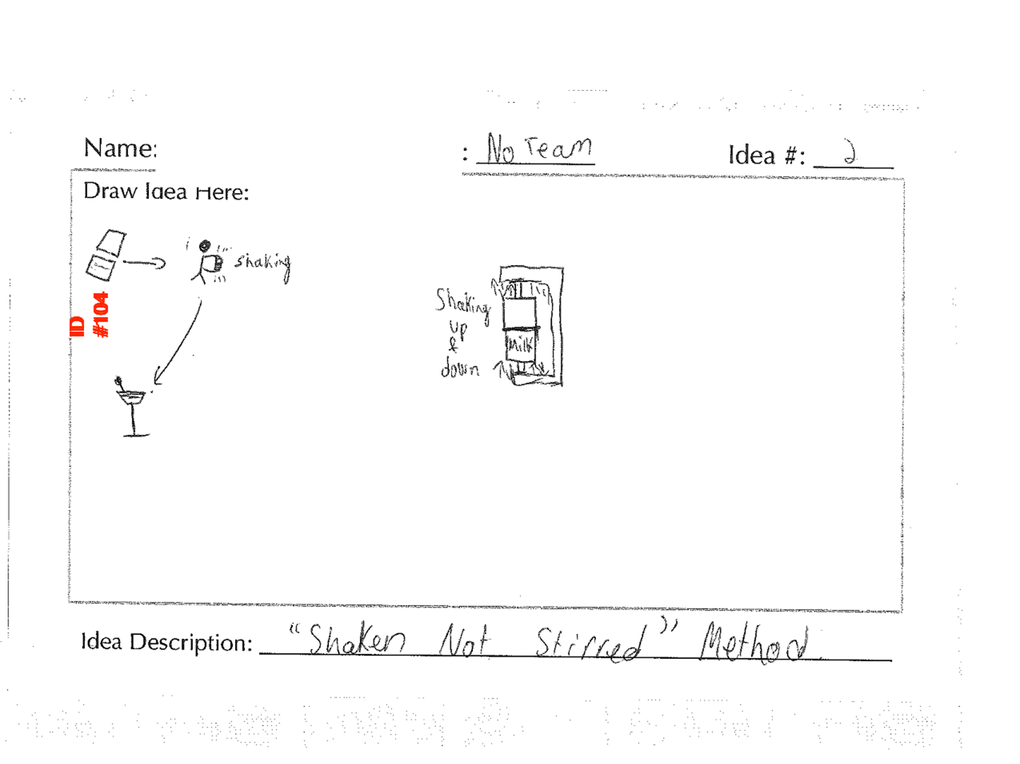 Name:
: No Team
Idea #: 2
Draw Idea Here:
shaking
ID
#104
Shaking
up
&
down
Milk
Idea Description: "Shaken Not Stirred" Method